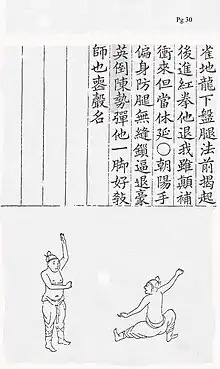 Pg 30
雀地龍下盤腿法前揭起
後進紅拳他退我雖顛補
衝來但當休延○朝陽手
偏身防腿無縫鎖逼退豪
英倒陣勢彈他一脚好教
師也喪聲名